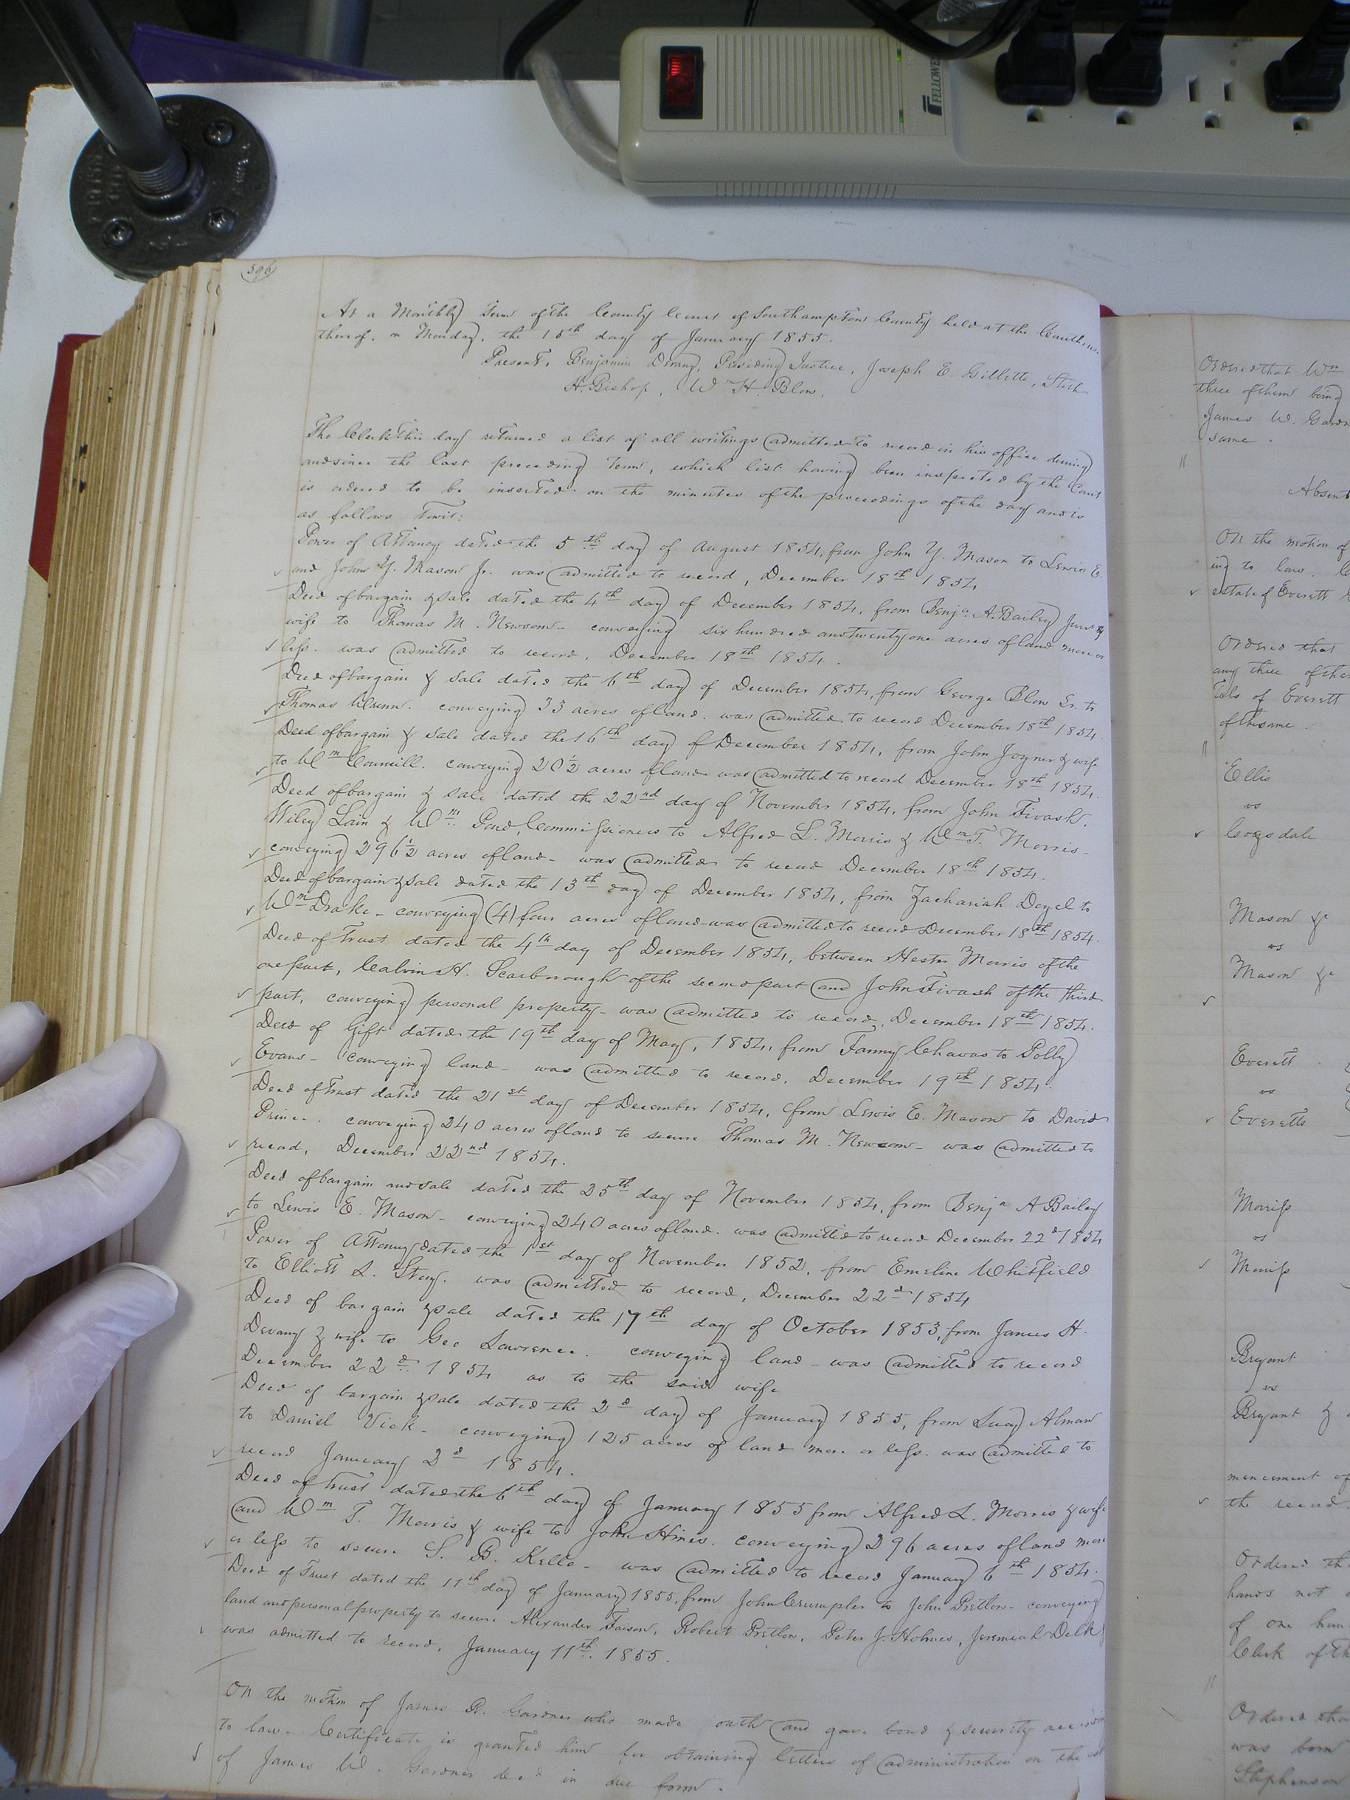 FELLOWES
596
At a Monthly Term of the County Court of Southampton County held at the Courthouse
thereof, on Monday, the 15th day of January 1855.
Present, Benjamin Devany, Presiding Justice, Joseph E. Gillette, Steth
H. Bishop, W. H. Blow.
The Clerk this day returned a list of all writings admitted to record in his office during
and since the last preceding Term, which list having been inspected by the Court
is ordered to be inserted on the minutes of the proceedings of the day and is
as follows Towit:
Power of Attorney dated the 5th day of August 1854, from John Y. Mason to Lewis E.
and John Y. Mason Jr. was admitted to record, December 18th 1854
Deed of bargain & sale dated the 4th day of December 1854, from Benja. A. Bailey
wife to Thomas M. Newsom conveying six hundred and twenty one acres of land more or
less. was admitted to record, December 18th 1854.
Deed of bargain & sale dated the 6th day of December 1854, from George Blow Sr. to
Thomas conveying 33 acres of land. was admitted to record December 18th 1854.
Deed of bargain & sale dated the 16th day of December 1854, from John Joyner & wife
to Wm Councill. conveying 20½ acres of land was admitted to record December 18th 1854.
Deed of bargain & sale dated the 22nd day of November 1854, from John Fivash,
Wiley Lain & Wm. Commissioners to Alfred L. Morris & Wm T. Morris
conveying 296½ acres of land - was admitted to record December 18th 1854.
Deed of bargain & sale dated the 13th day of December 1854, from Zachariah Doyel to
Wm Drake - conveying (4) four acres of land was admitted to record December 18th 1854.
Deed of Trust dated the 4th day of December 1854, between Hester Morris of the
one part, Calvin H. Scarborough of the second part and John Fivash of the third
part, conveying personal property - was admitted to record, December 18th 1854.
Deed of Gift dated the 19th day of May, 1854, from Fanny Chavas to Polly
Evans - conveying land - was admitted to record, December 19th 1854.
Deed of Trust dated the 21st day of December 1854, from Lewis E. Mason to David
Prince. conveying 240 acres of land to secure Thomas M. Newsom - was admitted to
record, December 22nd 1854.
Deed of bargain and sale dated the 25th day of November 1854, from Benja A Bailey
to Lewis E. Mason - conveying 240 acres of land. was admitted to record December 22d 1854
Power of Attorney dated the 1st day of November 1852, from Emeline Whitfield
to Elliott L. Story. was admitted to record, December 22d 1854
Deed of bargain & sale dated the 17th day of October 1853, from James H.
Devany & wife to Geo Lawrence. conveying land - was admitted to record
December 22d 1854 as to the said wife
Deed of bargain & sale dated the 2d day of January 1855, from Lucy Alman
to Daniel Vick - conveying 125 acres of land more or less. was admitted to
record January 2d 1854.
Deed of Trust dated the 6th day of January 1855 from Alfred L. Morris & wife
and Wm T. Morris & wife to John Hines. conveying 296 acres of land more
or less to secure S. B. Kello - was admitted to record January 6th 1854.
Deed of Trust dated the 11th day of January 1855, from John Crumpler to John Pretlow - conveying
land and personal property to secure Alexander Faison, Robert Pretlow, Peter J. Holmes, Jeremiah Delk
was admitted to record, January 11th. 1855.
On the motion of James B. Gardner who made oath and gave bond & security according
to law. Certificate is granted him for obtaining letters of administration on the
of James W. Gardner decd in due form.
Ordered that Wm
three of them being
James W. Gardn
same.
Absent
On the motion of
ing to law.
estate of Everett
Ordered that
any three of the
of Everett
of the same.
Ellis
vs
Cogsdale
Mason &c
vs
Mason &c
Everett
vs
Everetts
Morriss
vs
Morriss
Bryant
vs
Bryant &
mencement of
the record.
Ordered th
hands not
of one hun
Clerk of th
Ordered tha
was born
Stephenson